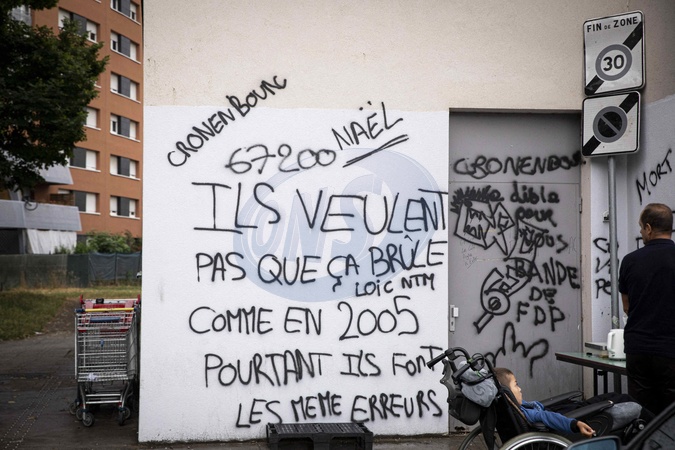 FIN DE ZONE
30
CRONENBOURG
67200
NAËL
ILS VEULENT
PAS QUE ÇA BRÛLE
LOIC NTM
COMME EN 2005
POURTANT ILS FONT
LES MEME ERREURS
CRONENBOU
dible
pour
vous
BANDE
DE
FDP
MORT